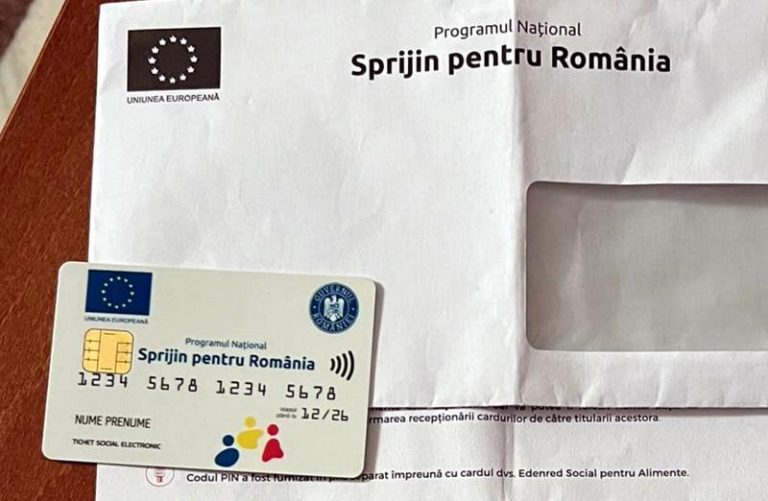 UNIUNEA EUROPEANĂ
Programul Național
Sprijin pentru România
UNIUNEA EUROPEANĂ
GUVERNUL ROMÂNIEI
Programul Național
Sprijin pentru România
1234 5678 1234 5678
12/26
NUME PRENUME
TICHET SOCIAL ELECTRONIC
rmarea recepționării cardurilor de către titularii acestora.
Codul PIN a fost furnizat în separat împreună cu cardul dvs. Edenred Social pentru Alimente.